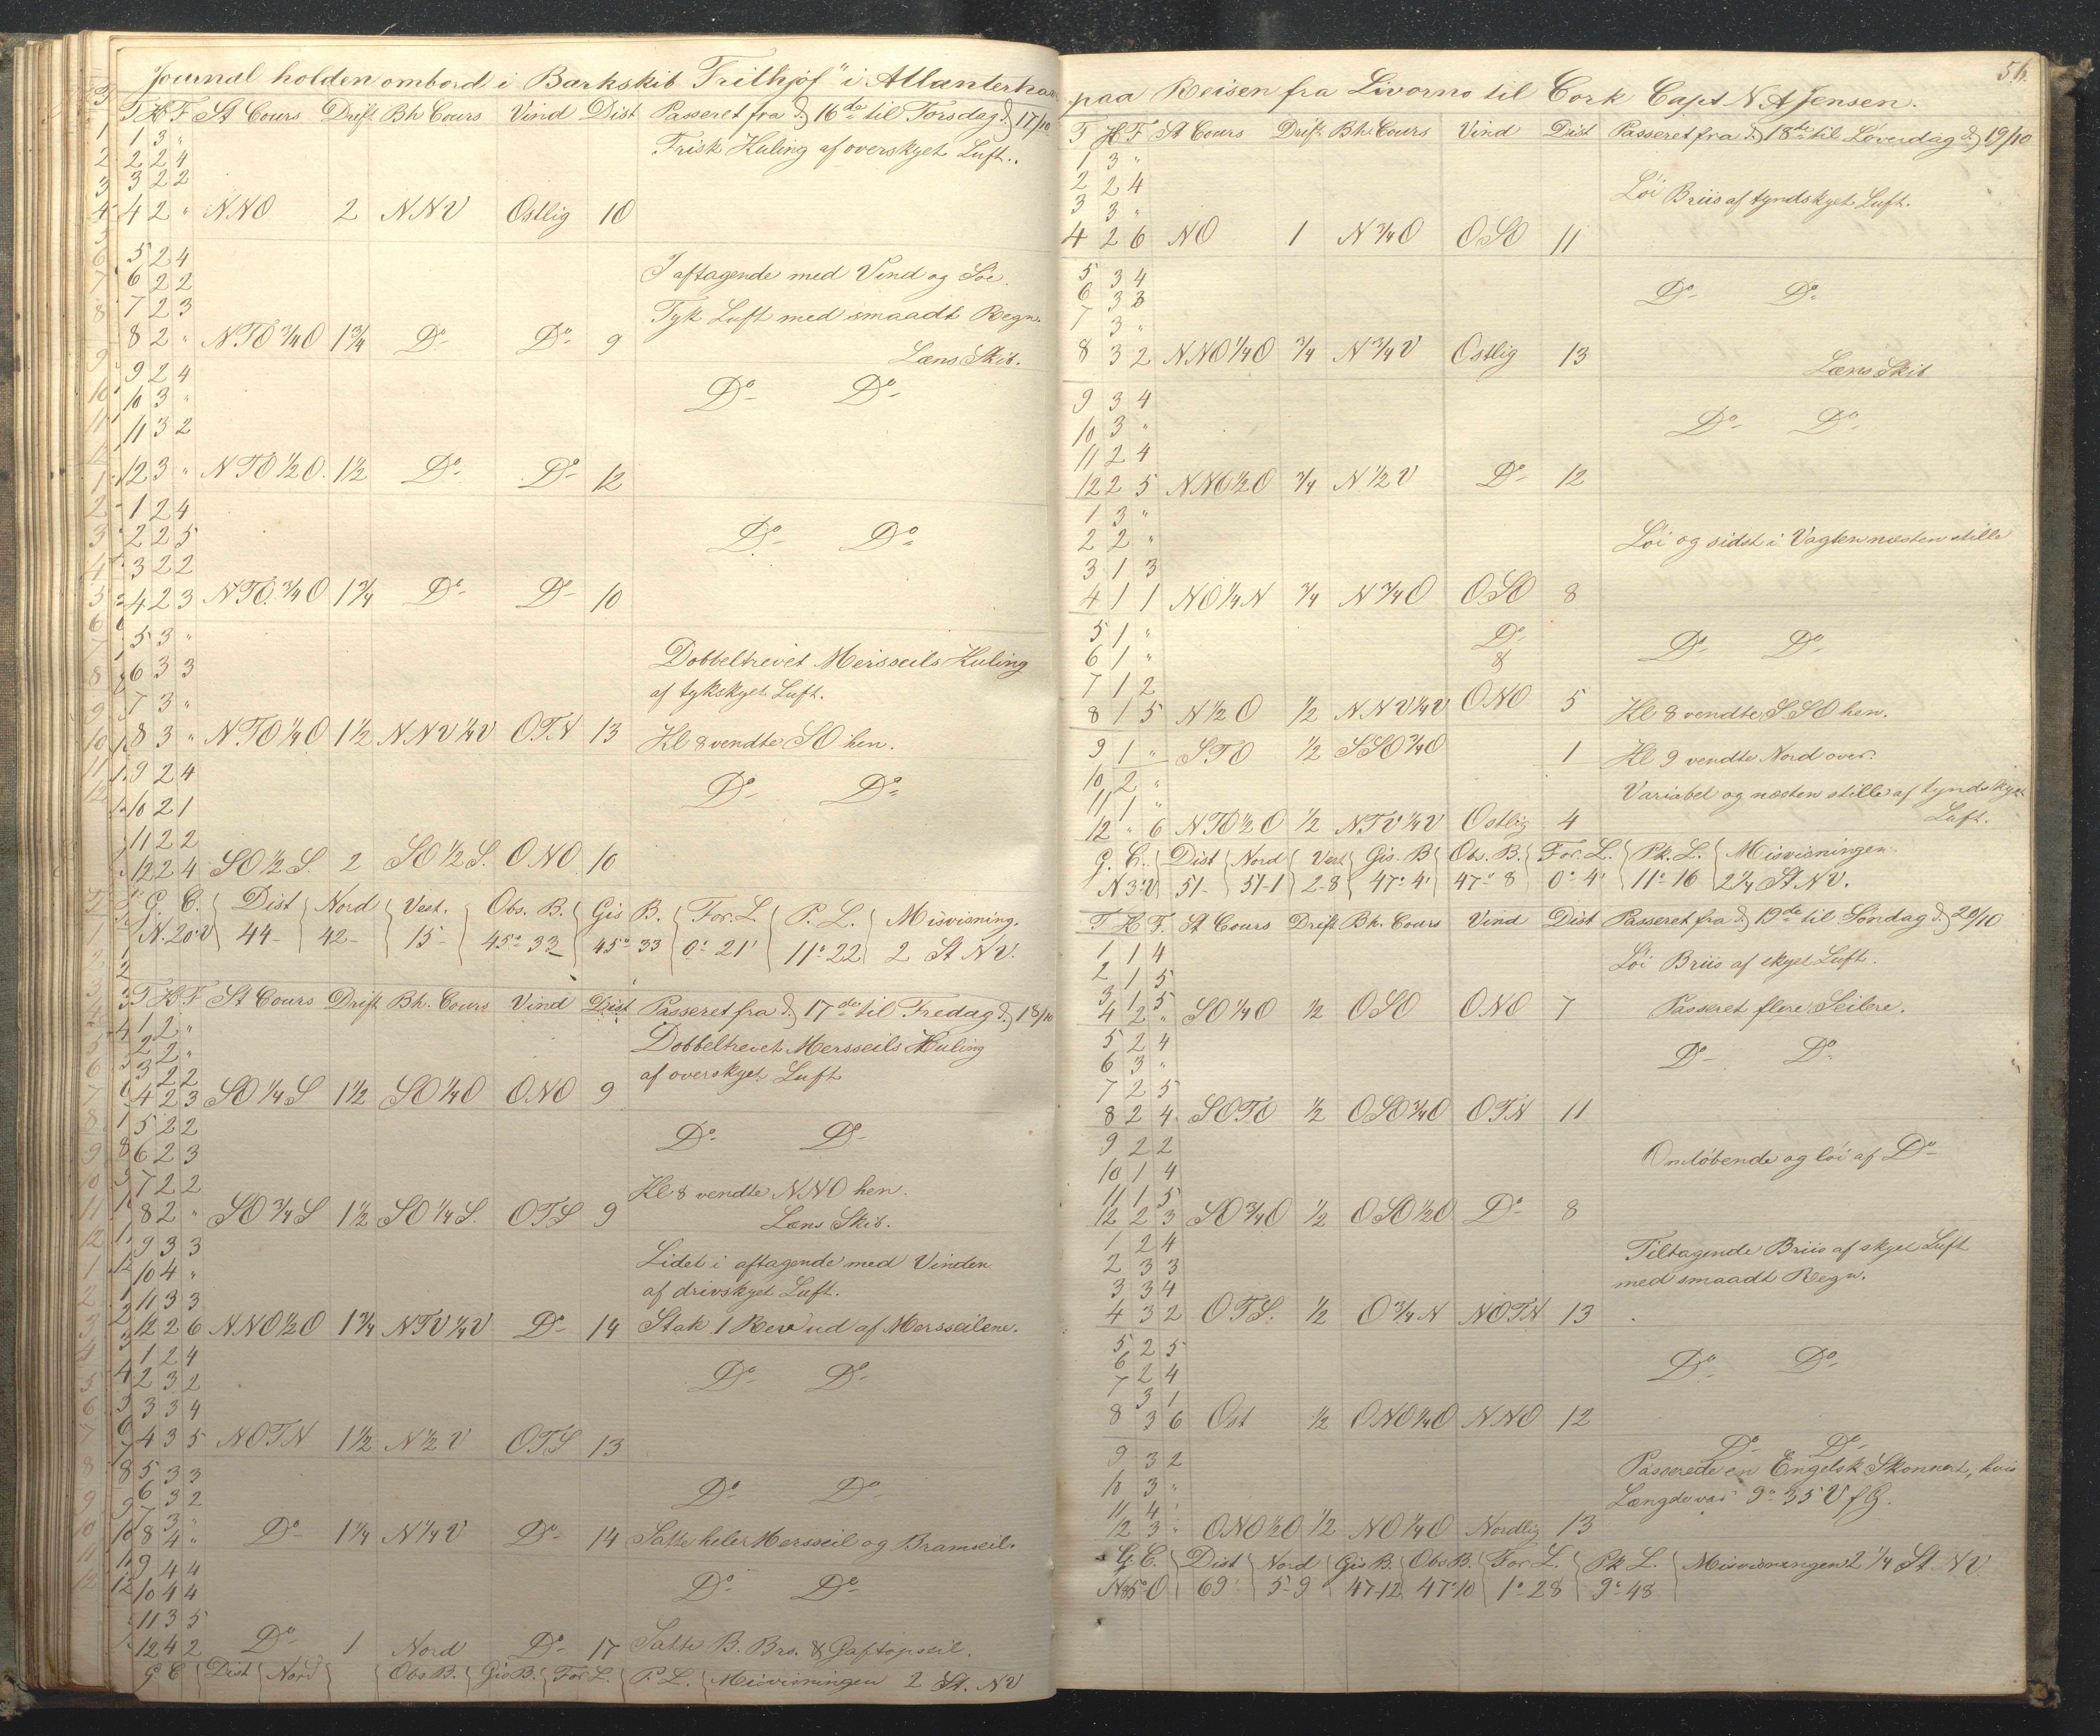 Journal holden ombord i Barkskib "Frithjof" i Atlanterhav
T H F St Cours Drift Bh Cours Vind Dist Passeret fra d) 16de til Torsdag d) 17/10
1 3 "
2 2 4
3 2 2
4 2 " NNO 2 NNV Ostlig 10
Frisk Kuling af overskyet Luft.
5 2 4
6 2 2
7 2 3
8 2 " NTO 3/4 O 1 3/4 Do Do 9
I aftagende med Vind og Söe.
Tyk Luft med smaadt Regn.
Læns Skib.
9 2 4
10 3 "
11 3 2
12 3 " NTO 1/2 O. 1 1/2 Do Do 12
Do Do
1 2 4
2 2 5
3 2 2
4 2 3 NTO. 3/4 O 1 3/4 Do Do 10
Do Do
5 3 "
6 3 3
7 3 "
8 3 " NTO 1/4 O 1 1/2 NNV 1/4 V OTN 13
Dobbeltrevet Mersseils Kuling
af tykskyet Luft.
Kl 8 vendte SO hen.
9 2 4
10 2 1
11 2 2
12 2 4 SO 1/2 S. 2 SO 1/2 S. ONO 10
Do Do
G. C. Dist Nord Vest. Obs. B. Gis B. For. L. P. L. Misvisning.
N. 20° V 44 - 42 - 15 - 45° 33 45° 33 0° 21' 11° 22 2 St NV.
T H F St Cours Drift Bh. Cours Vind Dist Passeret fra d) 17de til Fredag d) 18/10
1 2 "
2 2 "
3 2 2
4 2 3 SO 1/4 S 1 1/2 SO 1/4 O ONO 9
Dobbeltrevet Mersseils Kuling
af overskyet Luft
5 2 2
6 2 3
7 2 2
8 2 " SO 3/4 S 1 1/2 SO 1/4 S. OTS 9
Do Do
Kl 8 vendte NNO hen.
Læns Skib.
9 3 3
10 4 "
11 3 3
12 2 6 NNO 1/2 O 1 3/4 NTV 1/4 V Do 14
Lidet i aftagende med Vinden
af drivskyet Luft.
Stak 1 Rev ud af Mersseilene.
1 2 4
2 3 2
3 3 4
4 3 5 NOTN 1 1/2 N 1/2 V OTS 13
Do Do
5 3 3
6 3 2
7 3 "
8 4 " Do 1 1/4 N 1/4 V Do 14
Do Do
Satte hele Mersseil og Bramseil.
9 4 4
10 4 4
11 3 5
12 4 2 Do 1 Nord Do 17
Do Do
Satte B. Bro. & Gaftopseil.
G C Dist Nord Obs B. Gis B. For L. P. L. Misvisningen 2 St. NV
56.
paa Reisen fra Livorno til Cork Capt N. A Jensen.
T H F St Cours Drift Bh. Cours Vind Dist Passeret fra d) 18de til Löverdag d) 19/10
1 3 "
2 2 4
3 3 "
4 2 6 NO 1 N 3/4 O OSO 11
Löi Briis af tyndskyet Luft.
5 3 4
6 3 3
7 3 "
8 3 2 NNO 1/4 O 3/4 N 3/4 V Ostlig 13
Do Do
Læns Skib
9 3 4
10 3 "
11 2 4
12 2 5 NNO 1/2 O 3/4 N 1/2 V Do 12
Do Do
1 3 "
2 2 "
3 1 3
4 1 1 NO 1/4 N 3/4 N 3/4 O OSO 8
Löi og sidst i Vagten næsten stille
5 1 "
6 1 "
7 1 2
8 1 5 N 1/2 O 1/2 NNV 1/4 V Do & ONO 5
Do Do
Kl 8 vendte SSO hen.
9 1 " STO 1/2 SSO 3/4 O 1 Kl 9 vendte Nord over.
10 2 "
11 1 "
12 " 6 NTO 1/2 O 1/2 NTV 1/4 V Ostlig 4
Variabel og næsten stille af tyndskyet
Luft.
G. C. Dist Nord Vest Gis. B Obs. B. For. L. Pk. L. Misvisningen
N 3° V 51 - 51-1 2-8 47° 4' 47° 8 0° 4' 11° 16 2 1/4 St NV.
T H F. St Cours Drift Bh. Cours Vind Dist Passeret fra d) 19de til Söndag d) 20/10
1 1 4
2 1 5
3 1 5
4 2 " SO 1/4 O 1/2 OSO ONO 7
Löi Briis af skyet Luft.
Passeret flere Seilere.
5 2 4
6 3 "
7 2 5
8 2 4 SOTO 1/2 OSO 3/4 O OTN 11
Do Do
9 2 2
10 1 4
11 1 5
12 2 3 SO 3/4 O 1/2 OSO 1/2 O Do 8
Omlöbende og löi af Do
1 2 4
2 3 3
3 3 4
4 3 2 OTS. 1/2 O 3/4 N NOTN 13
Tiltagende Briis af skyet Luft
med smaadt Regn.
5 2 5
6 2 4
7 3 1
8 3 6 Ost 1/2 ONO 1/4 O NNO 12
Do Do
9 3 2
10 3 "
11 4 "
12 3 " ONO 1/2 O 1/2 NO 1/4 O Nordlig 13
Do Do
Passerede en Engelsk Skonnert, hvis
Længde var 9° 35 V f G.
G C. Dist Nord Gis B. Obs B. For L. Pk L. Misvisningen 2 1/4 St. NV
N 85° O 69' 5-9 47-12 47° 10 1° 28 9° 48